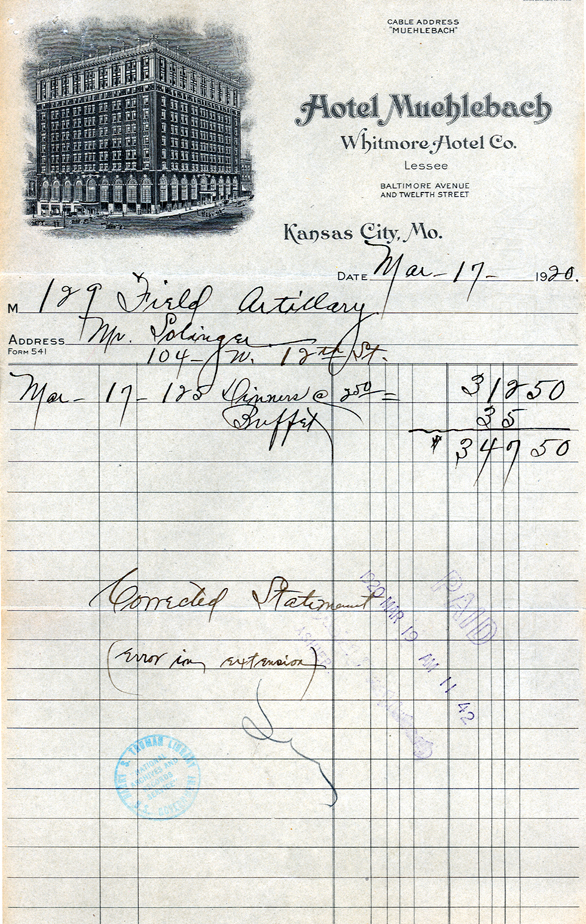 CABLE ADDRESS
"MUEHLEBACH"
Hotel Muehlebach
Whitmore Hotel Co.
Lessee
BALTIMORE AVENUE
AND TWELFTH STREET
Kansas City, Mo.
DATE Mar-17- 1920.
M 129 Field Artillary
ADDRESS Mr. Solinger
FORM 541 104- W. 12th St.
Mar- 17- 125 Dinners @ 2 50 = 312 50
Buffet 35
$ 347 50
Corrected Statement
(Error in extension)
PAID
1920 MAR 19 AM 11 42
HARRY S. TRUMAN LIBRARY
NATIONAL
ARCHIVES AND